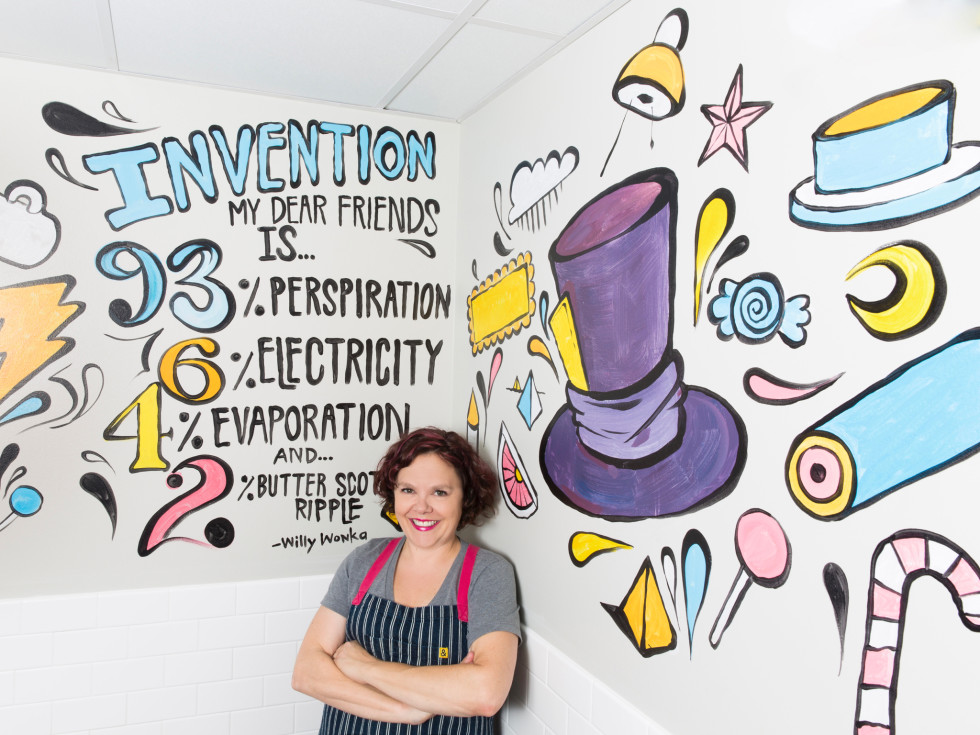 INVENTION
MY DEAR FRIENDS
IS...
93% PERSPIRATION
6% ELECTRICITY
4% EVAPORATION
AND...
2% BUTTER SCOT
RIPPLE
-Willy Wonka
&